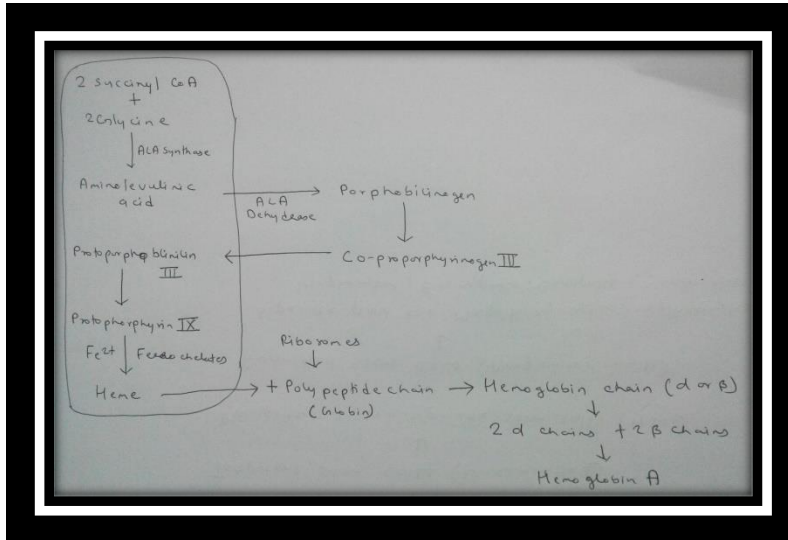 2 Succinyl CoA
+
2 Glycine
ALA Synthase
Aminolevulinic
acid
ALA
Dehydease
Porphobilinogen
Co-proporphyrinogen III
III
Protopherphyrin IX
Fe2+
Heme
Ribosomes
+ Polypeptide chain
(Globin)
Hemoglobin chain (α or β)
2 α chains + 2 β chains
Hemoglobin A